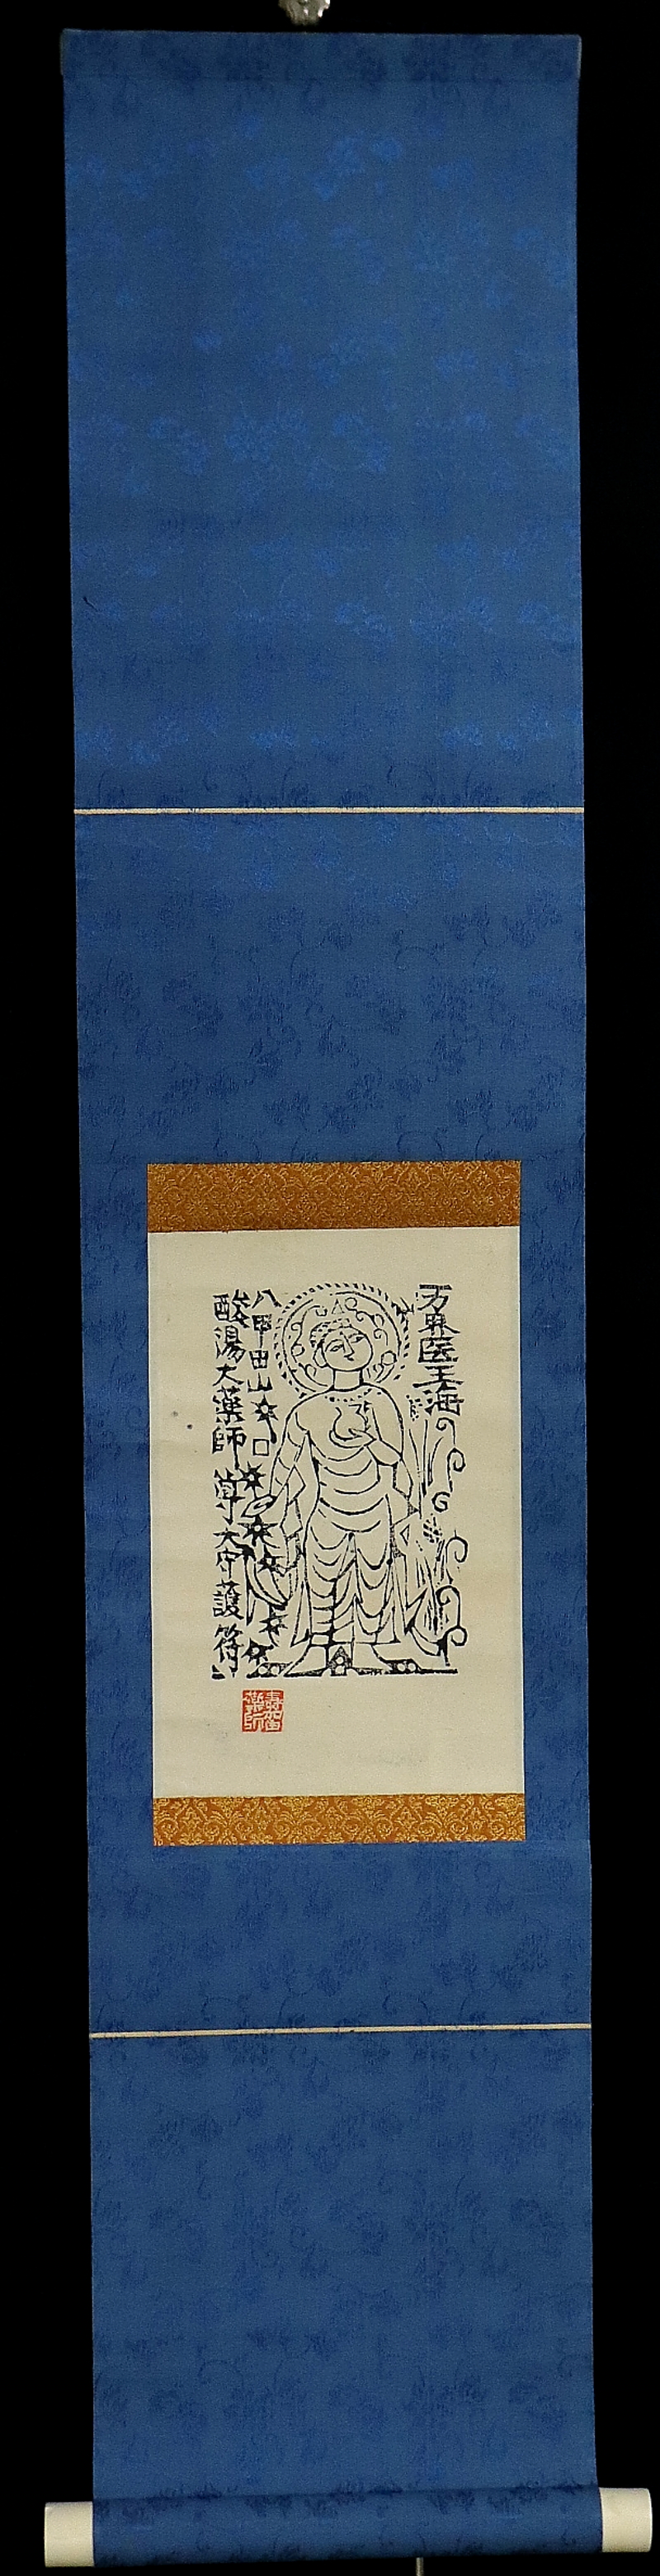 万界医王海
八甲田山
酸湯大薬師尊大守護符